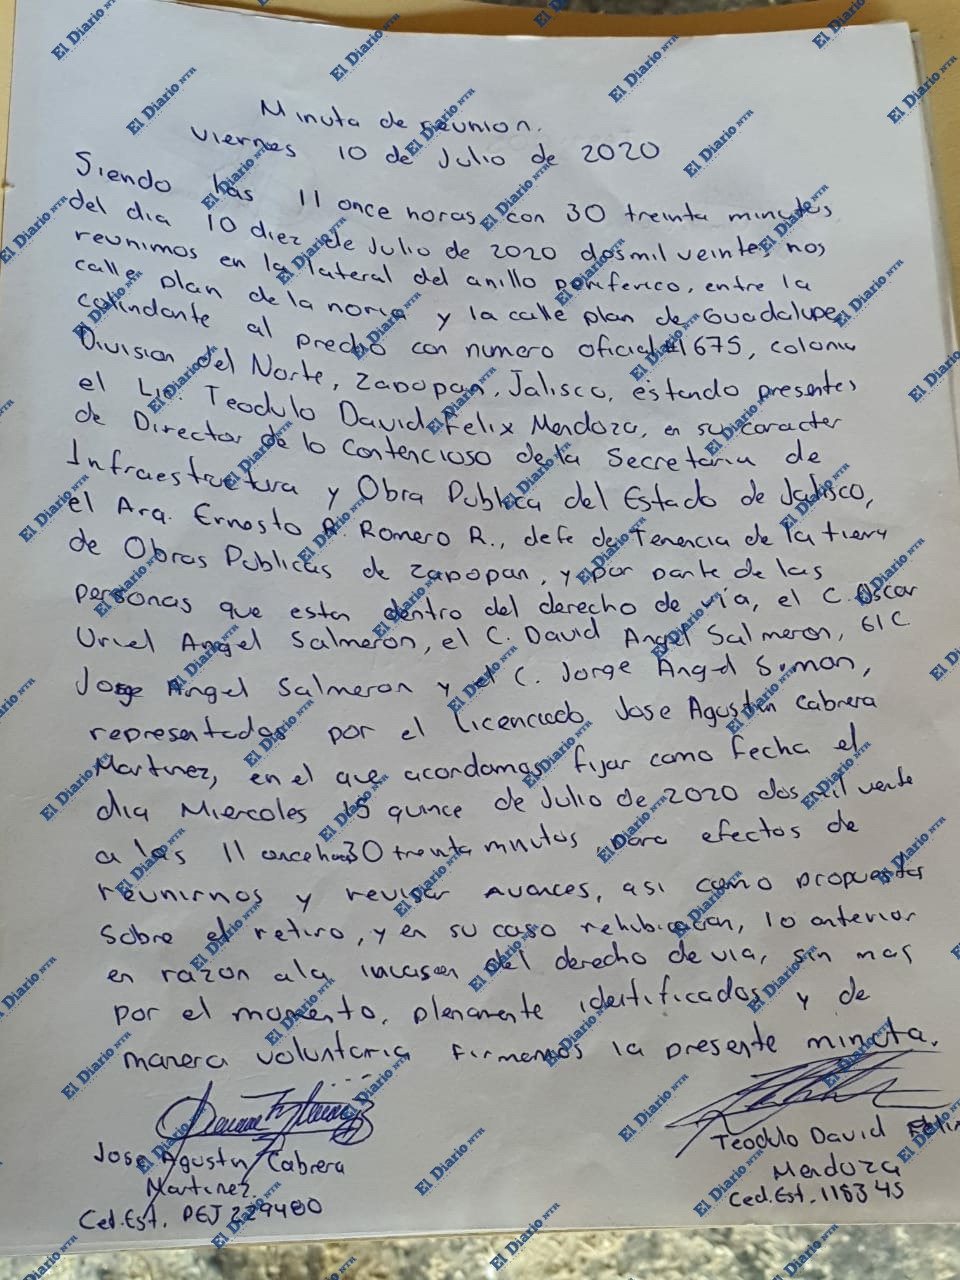 Minuta de reunion.
Viernes 10 de Julio de 2020
Siendo las 11 once horas con 30 treinta minutos
del dia 10 diez de Julio de 2020 dosmil veinte, nos
reunimos en la lateral del anillo periferico, entre la
calle plan de la noria y la calle plan de Guadalupe,
colindante al predio con numero oficial #1675, colonia
Division del Norte, Zapopan, Jalisco, estando presentes
el Lic. Teodulo David Felix Mendoza, en su caracter
de Director de lo Contencioso de la Secretaria de
Infraestructura y Obra Publica del Estado de Jalisco,
el Arq. Ernesto R. Romero R., Jefe de Tenencia de la tierra
de Obras Publicas de Zapopan, y por parte de las
personas que estan dentro del derecho de via, el C. Oscar
Uriel Angel Salmeron, el C. David Angel Salmeron, el C.
Jorge Angel Salmeron y el C. Jorge Angel Simon,
representados por el licenciado Jose Agustin Cabrera
Martinez, en el que acordamos fijar como fecha el
dia Miercoles 15 quince de Julio de 2020 dos mil veinte
a las 11 once 30 treinta minutos, para efectos de
reunirnos y revisar avances, asi como propuestas
sobre el retiro, y en su caso rehubicacion, lo anterior
en razon a la invasion del derecho de via, sin mas
por el momento, plenamente identificados y de
manera voluntaria firmemos la presente minuta.
Jose Agustin Cabrera
Martinez.
Ced. Est. PEJ 229480
Teodulo David Felix
Mendoza
Ced. Est. 118345
El Diario NTR